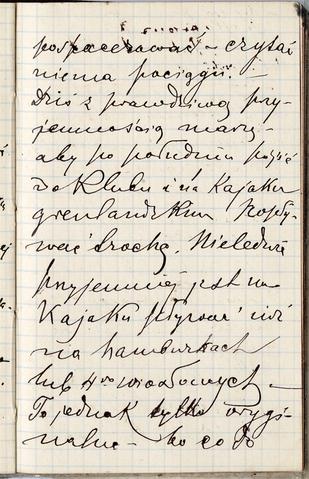 pospacerować – czytać
niema pociągu. –
Dziś z prawdziwą przy-
jemnością marzy-
aby po południu pójść
do Klubu i na Kajaku
grenlandzkim popły-
wać trochę. Nieledwie
przyjemniej jest na
Kajaku pływać niż
na hamburkach
lub 4ro wiosłowych –
To jednak tylko orygi-
nalne – bo co do